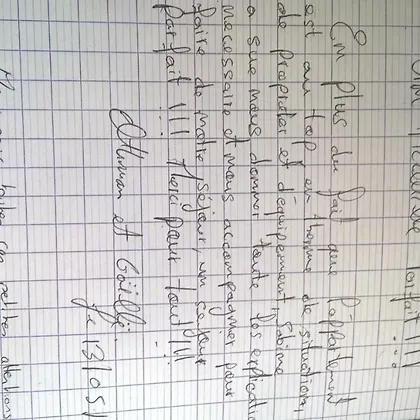 parfait !!!
En plus du fait que l'appartement
est au top en therme de situation,
de propreter et d'équipement, Sabine
a sue nous donner toute les
necessaire et nous accompagner pour
faire de notre séjour, un séjour
parfait !!! Merci pour tout !!!
et
Le 13/05/
petites attentions